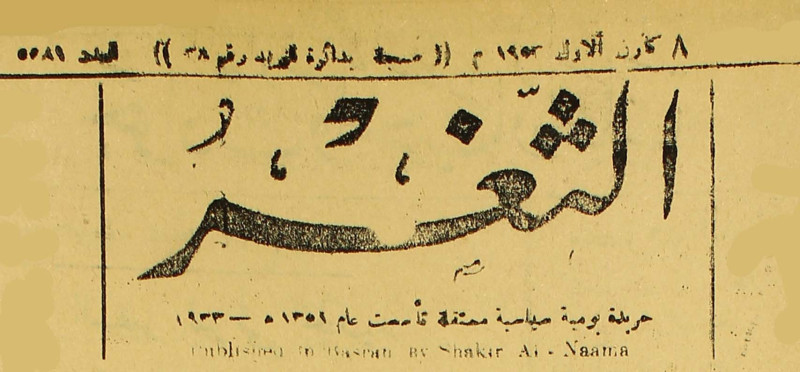 ٨ كانون الاول ١٩٥٣ م (( مسجلة بدائرة البريد رقم ٣٨ )) العدد ٥٥٨٩
الثغر
جريدة يومية سياسية مستقلة تأسست عام ١٣٥٢ ه — ١٩٣٣
Published In Basrah By Shakir Al - Naama